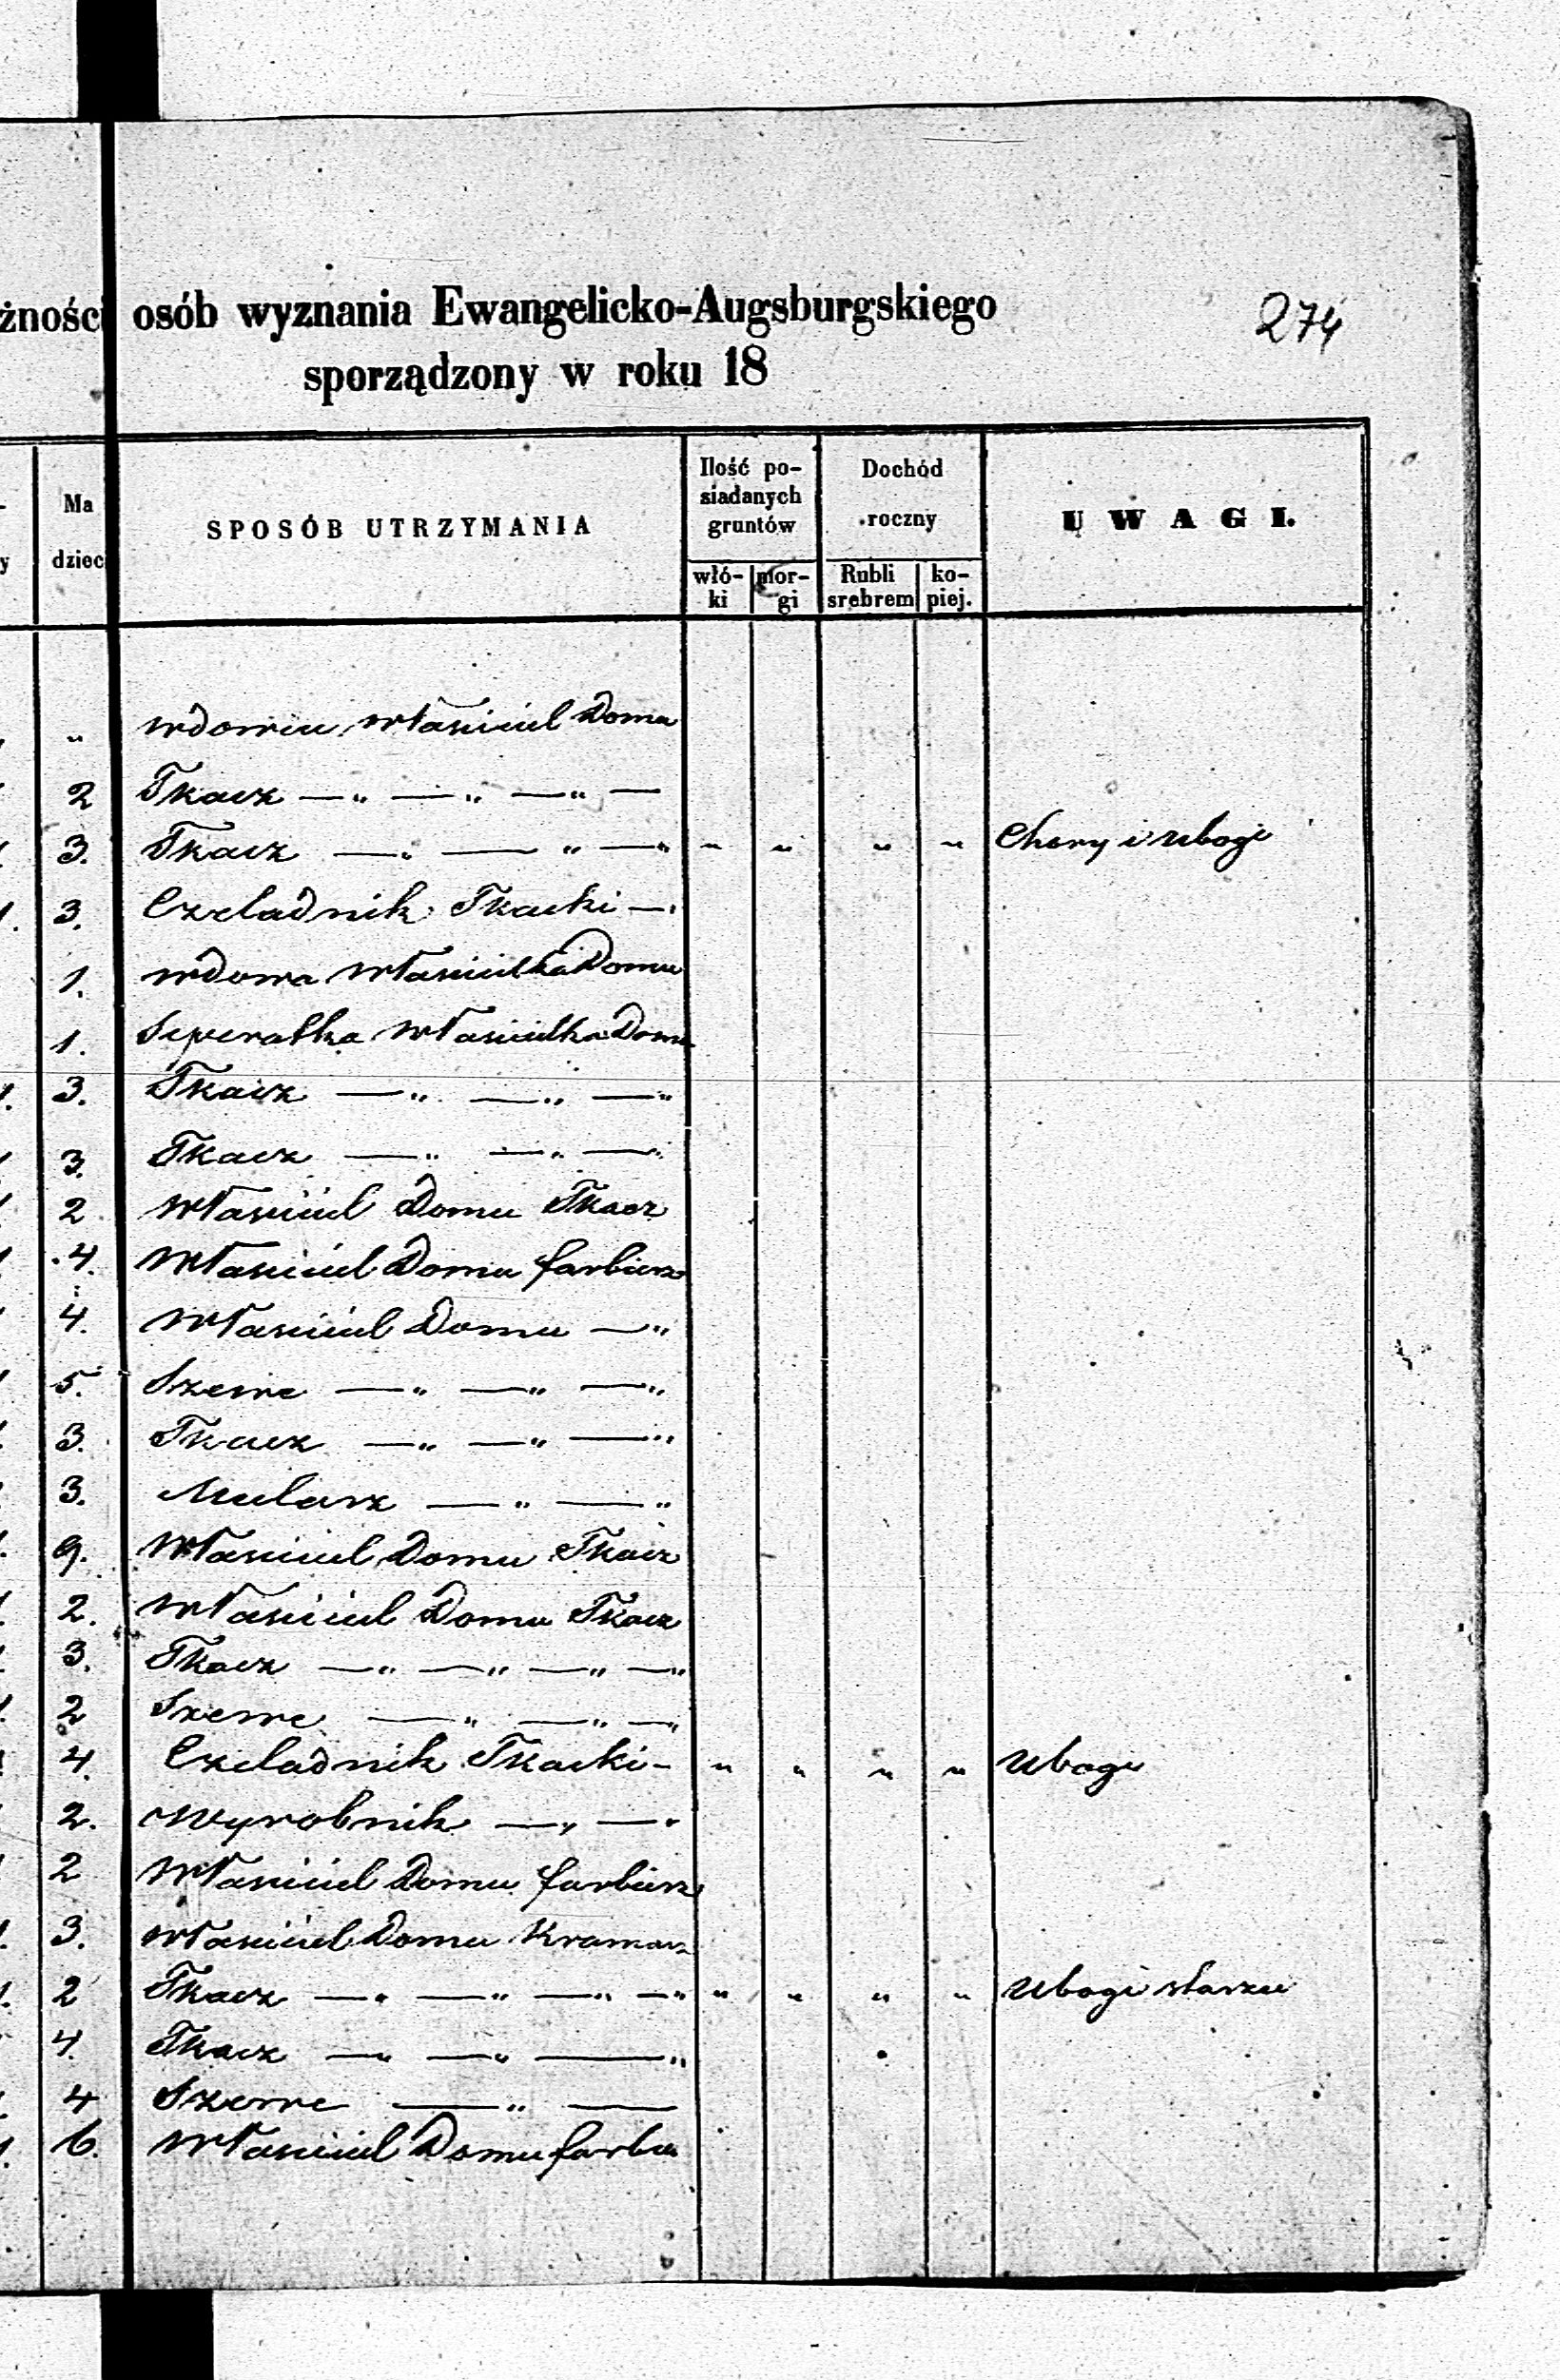 żności osób wyznania Ewangelicko-Augsburgskiego 274
sporządzony w roku 18
Ma dzieci
SPOSÓB UTRZYMANIA
Ilość posiadanych gruntów
Dochód roczny
UWAGI.
włó-ki mor-gi Rubli srebrem ko-piej.
" wdowiec własciciel Domu
2 Tkacz —„ —„ —„ —
3. Tkacz —„ — „ —„ „ „ „ „ Chory i ubogi
1. 3. Czeladnik Tkacki —„
1. wdowa włascicielka Domu
1. Seperatka włascicielka Domu
1. 3. Tkacz —„ —„ —„
3. Tkacz —„ —„ —„
2 własciciel Domu Tkacz
4. własciciel Domu farbierz
4. własciciel Domu —„
5. Szewc —„ —„ —„
3. Tkacz —„ —„ —„
3. Mularz —„ —„
9. własciciel Domu Tkacz
2. własciciel Domu Tkacz
3. Tkacz —„ —„ —„ —„
2 Szewc —„ —„ —„
4. Czeladnik Tkacki - „ „ „ „ Ubogi
2. wyrobnik —„ —„
2 własciciel Domu farbierz
3. własciciel Domu Kramarz
1. 2 Tkacz —„ —„ —„ —„ „ „ „ „ Ubogi starzec
4. Tkacz —„ —„ —„
4 Szewc —„ —
6. własciciel Domu